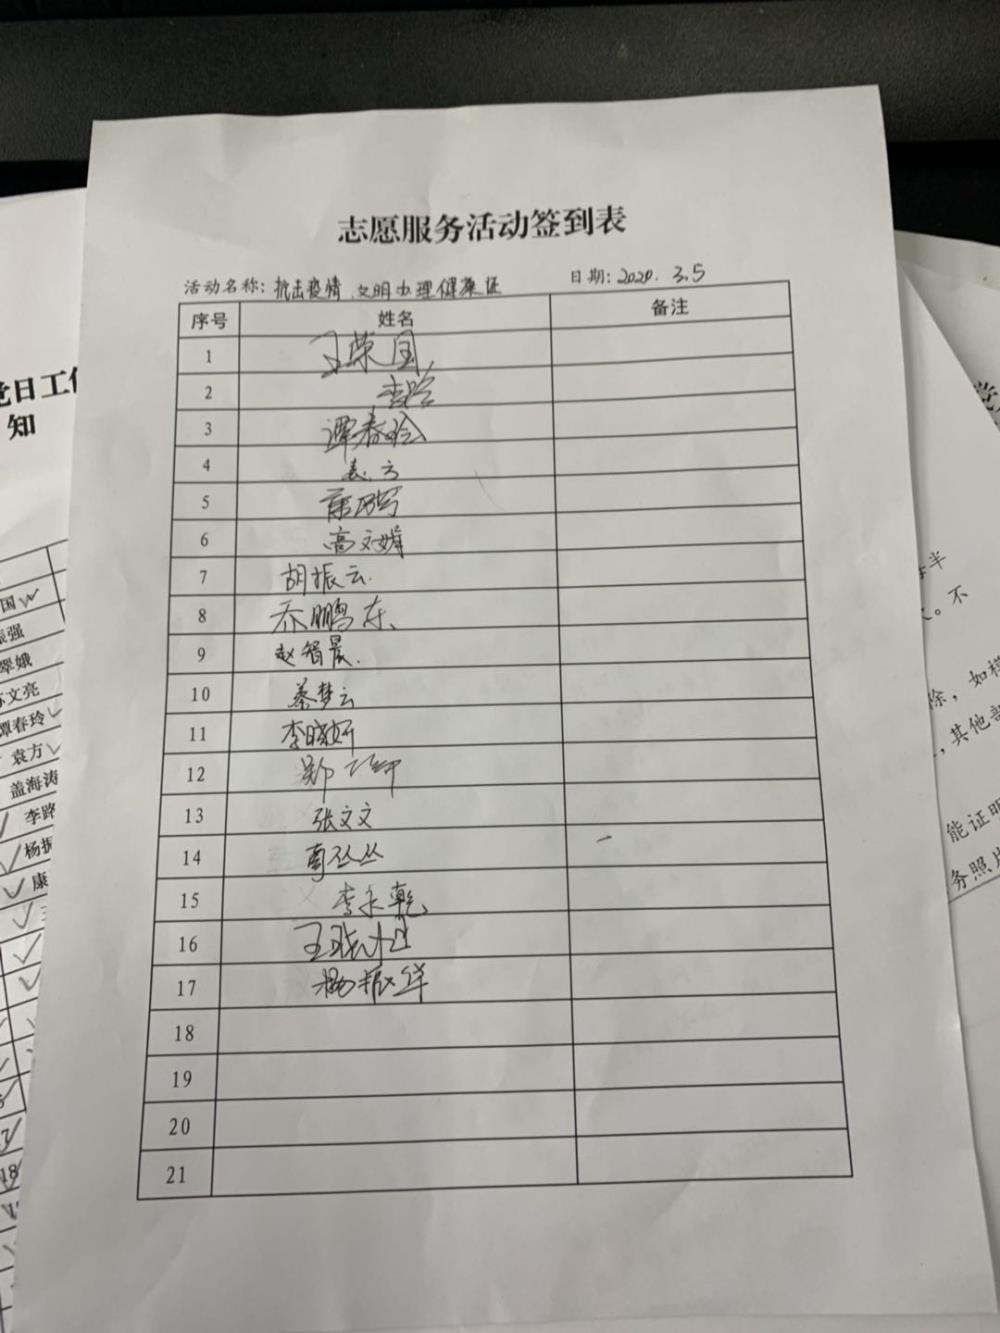 志愿服务活动签到表
活动名称：抗击疫情 文明办理健康证 日期：2020.3.5
序号 姓名 备注
1 王荣国
2 李路
3 谭春玲
4 袁方
5
6 高文娟
7 胡振云
8 乔鹏东
9 赵智晨
10 綦梦云
11 李晓妍
12
13 张文文
14 曹丛丛
15 李永乾
16
17 杨振华
18
19
20
21
党日工作
知
国
振强
翠娥
苏文亮
谭春玲
袁方
盖海涛
李路
杨振
康
18
半
。不
除，如
，其他
能证明
务照片